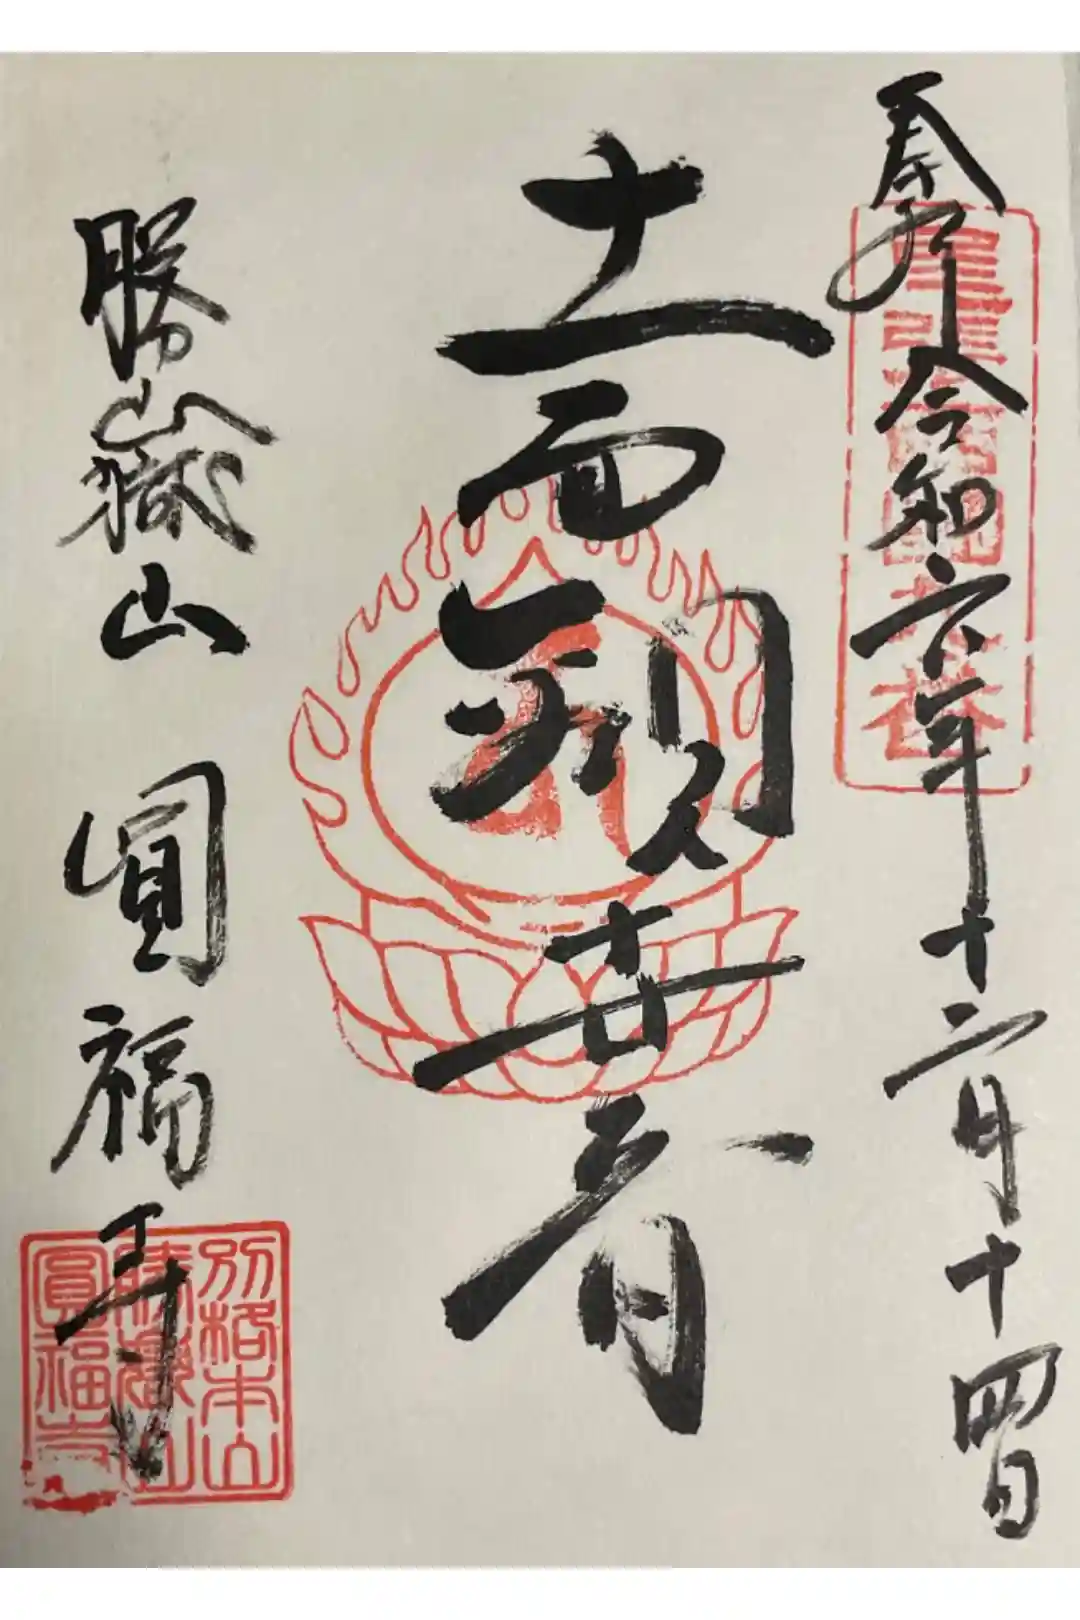 奉拝 令和六年十二月十四日
尾張西国
十一面観世音
勝嶽山 圓福寺
別格本山
勝嶽山
圓福寺